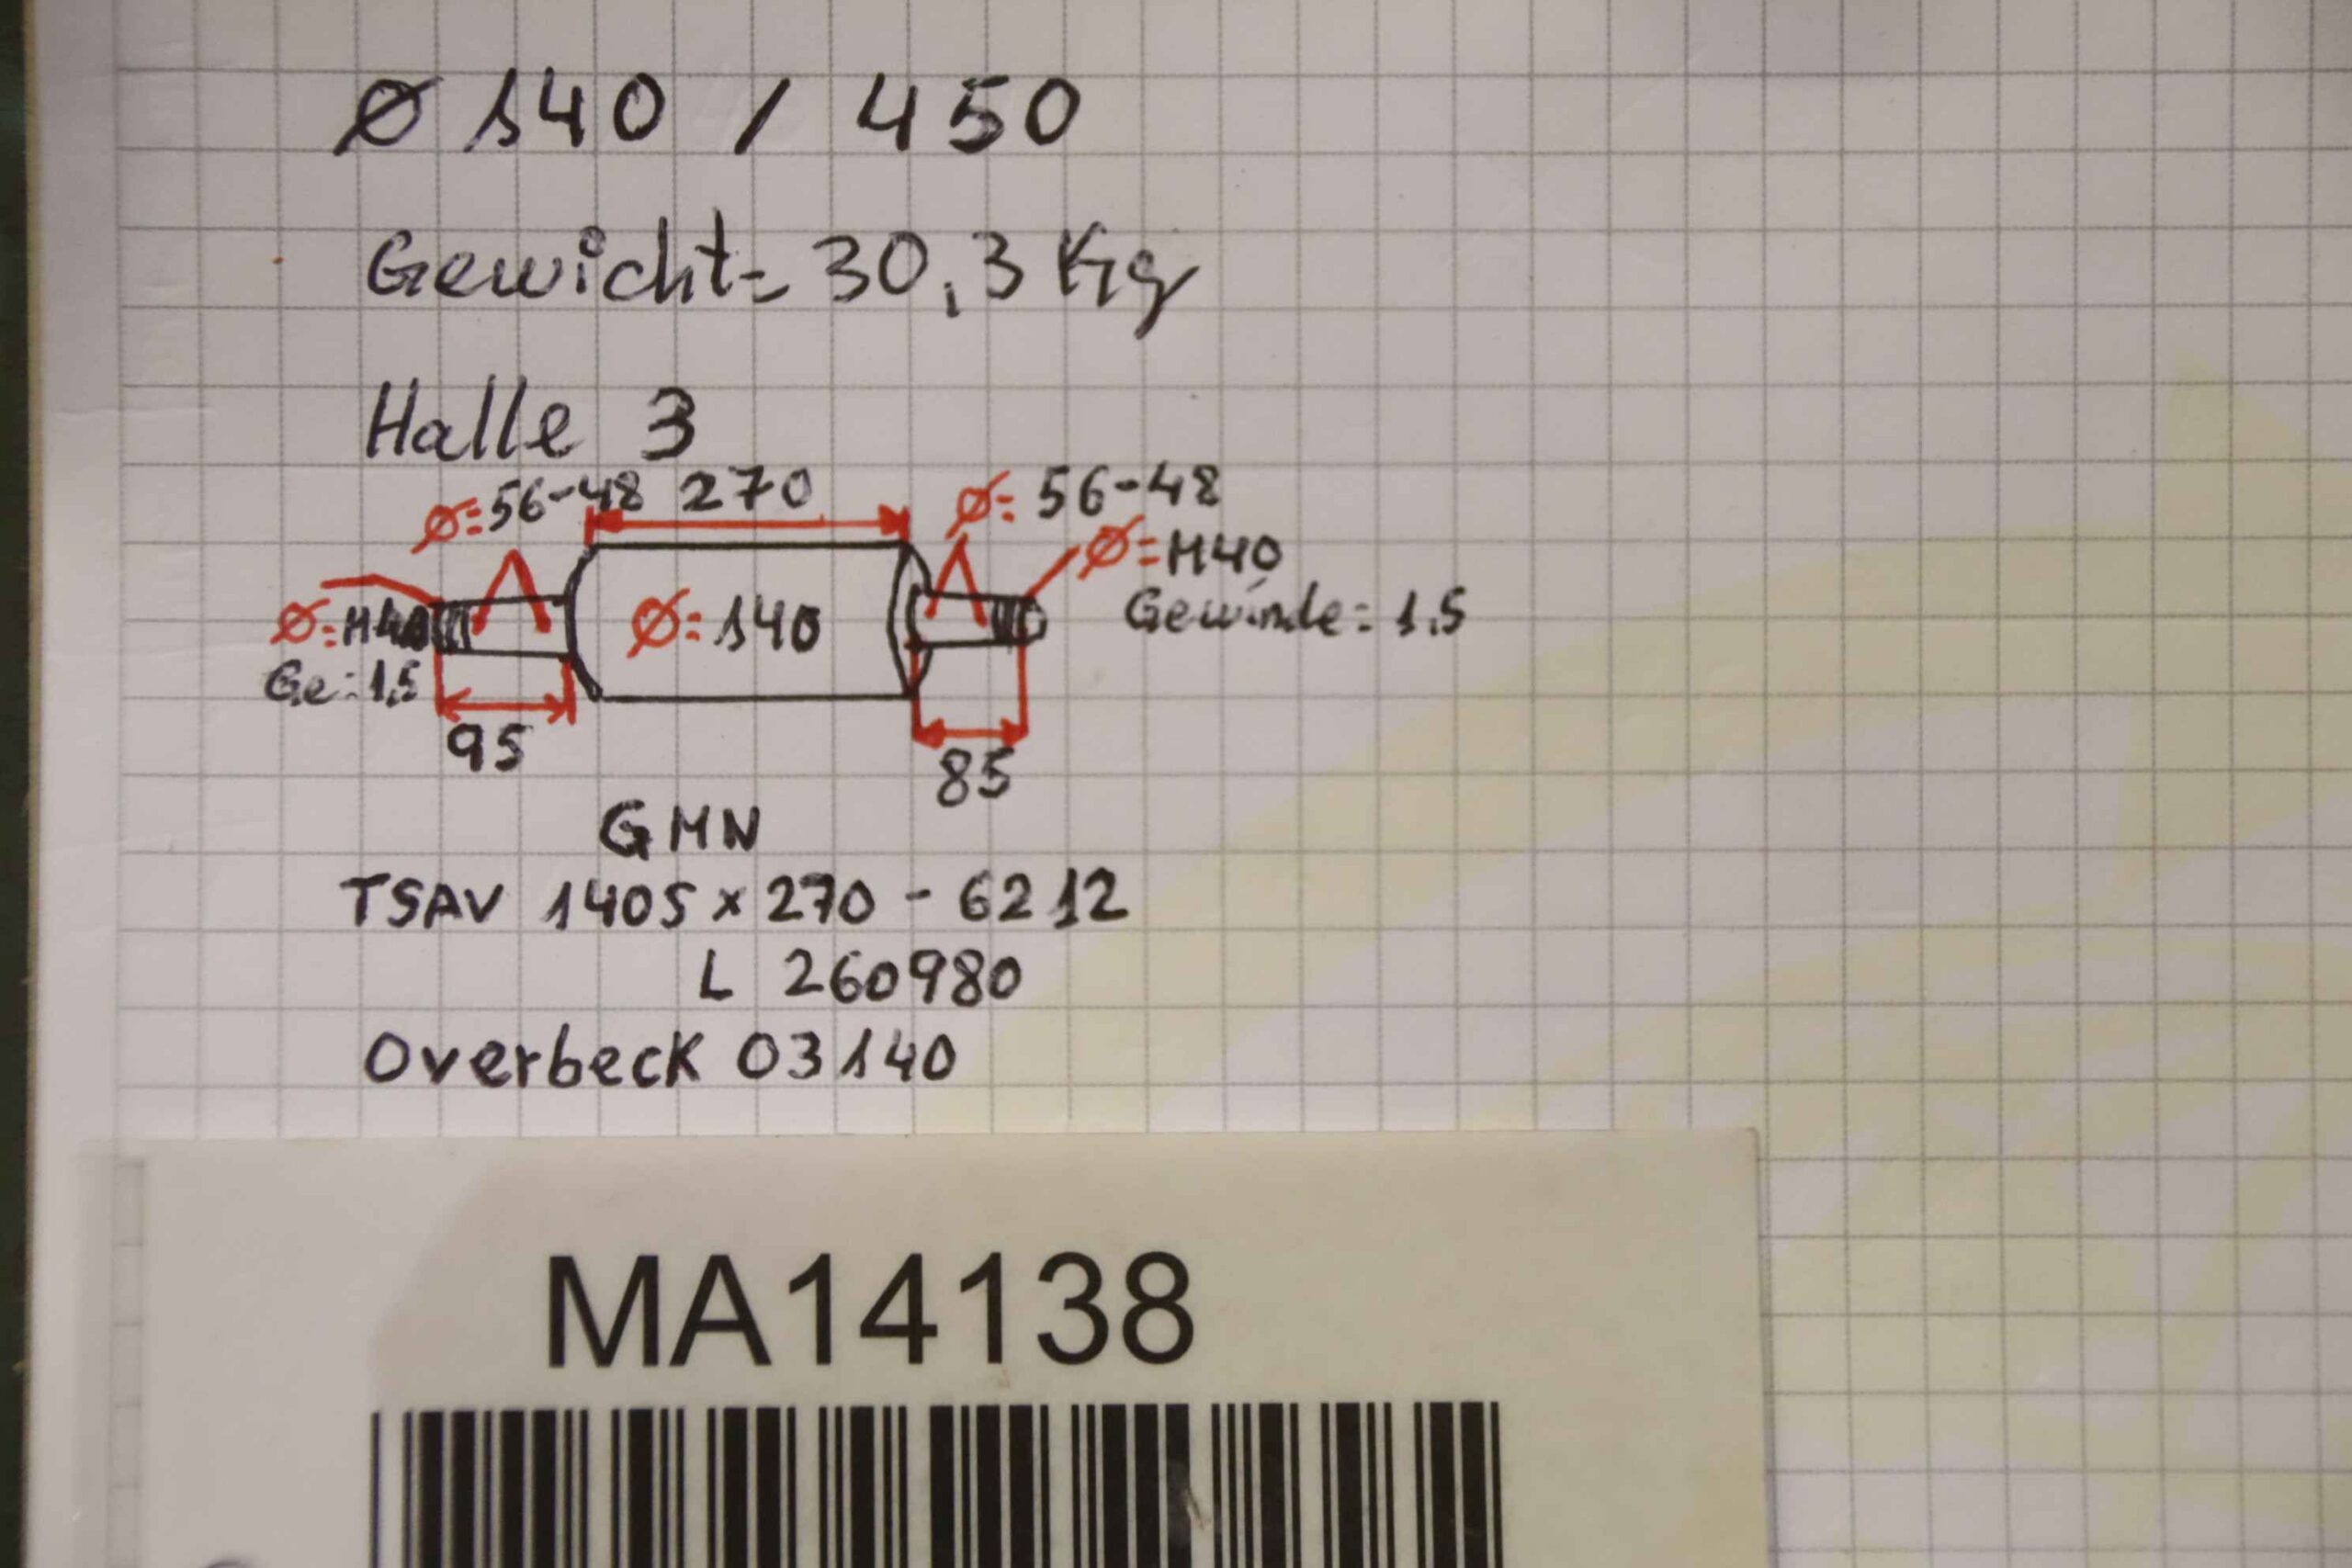 Ø 140 / 450
Gewicht= 30,3 Kg
Halle 3
Ø=56-48 270 Ø= 56-48
Ø=M40
Ø=M40 Ø=140 Gewinde= 1.5
Ge=1,5
95 85
GMN
TSAV 140S x 270 - 6212
L 260980
Overbeck 03140
MA14138